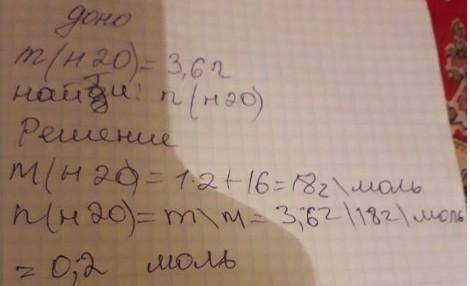 доно
m(н20)=3,6г
найти: n(н20)
Решение
M(н20)=1·2+16=18г\моль
n(н20)=m\м=3,6г\18г\моль
=0,2 моль